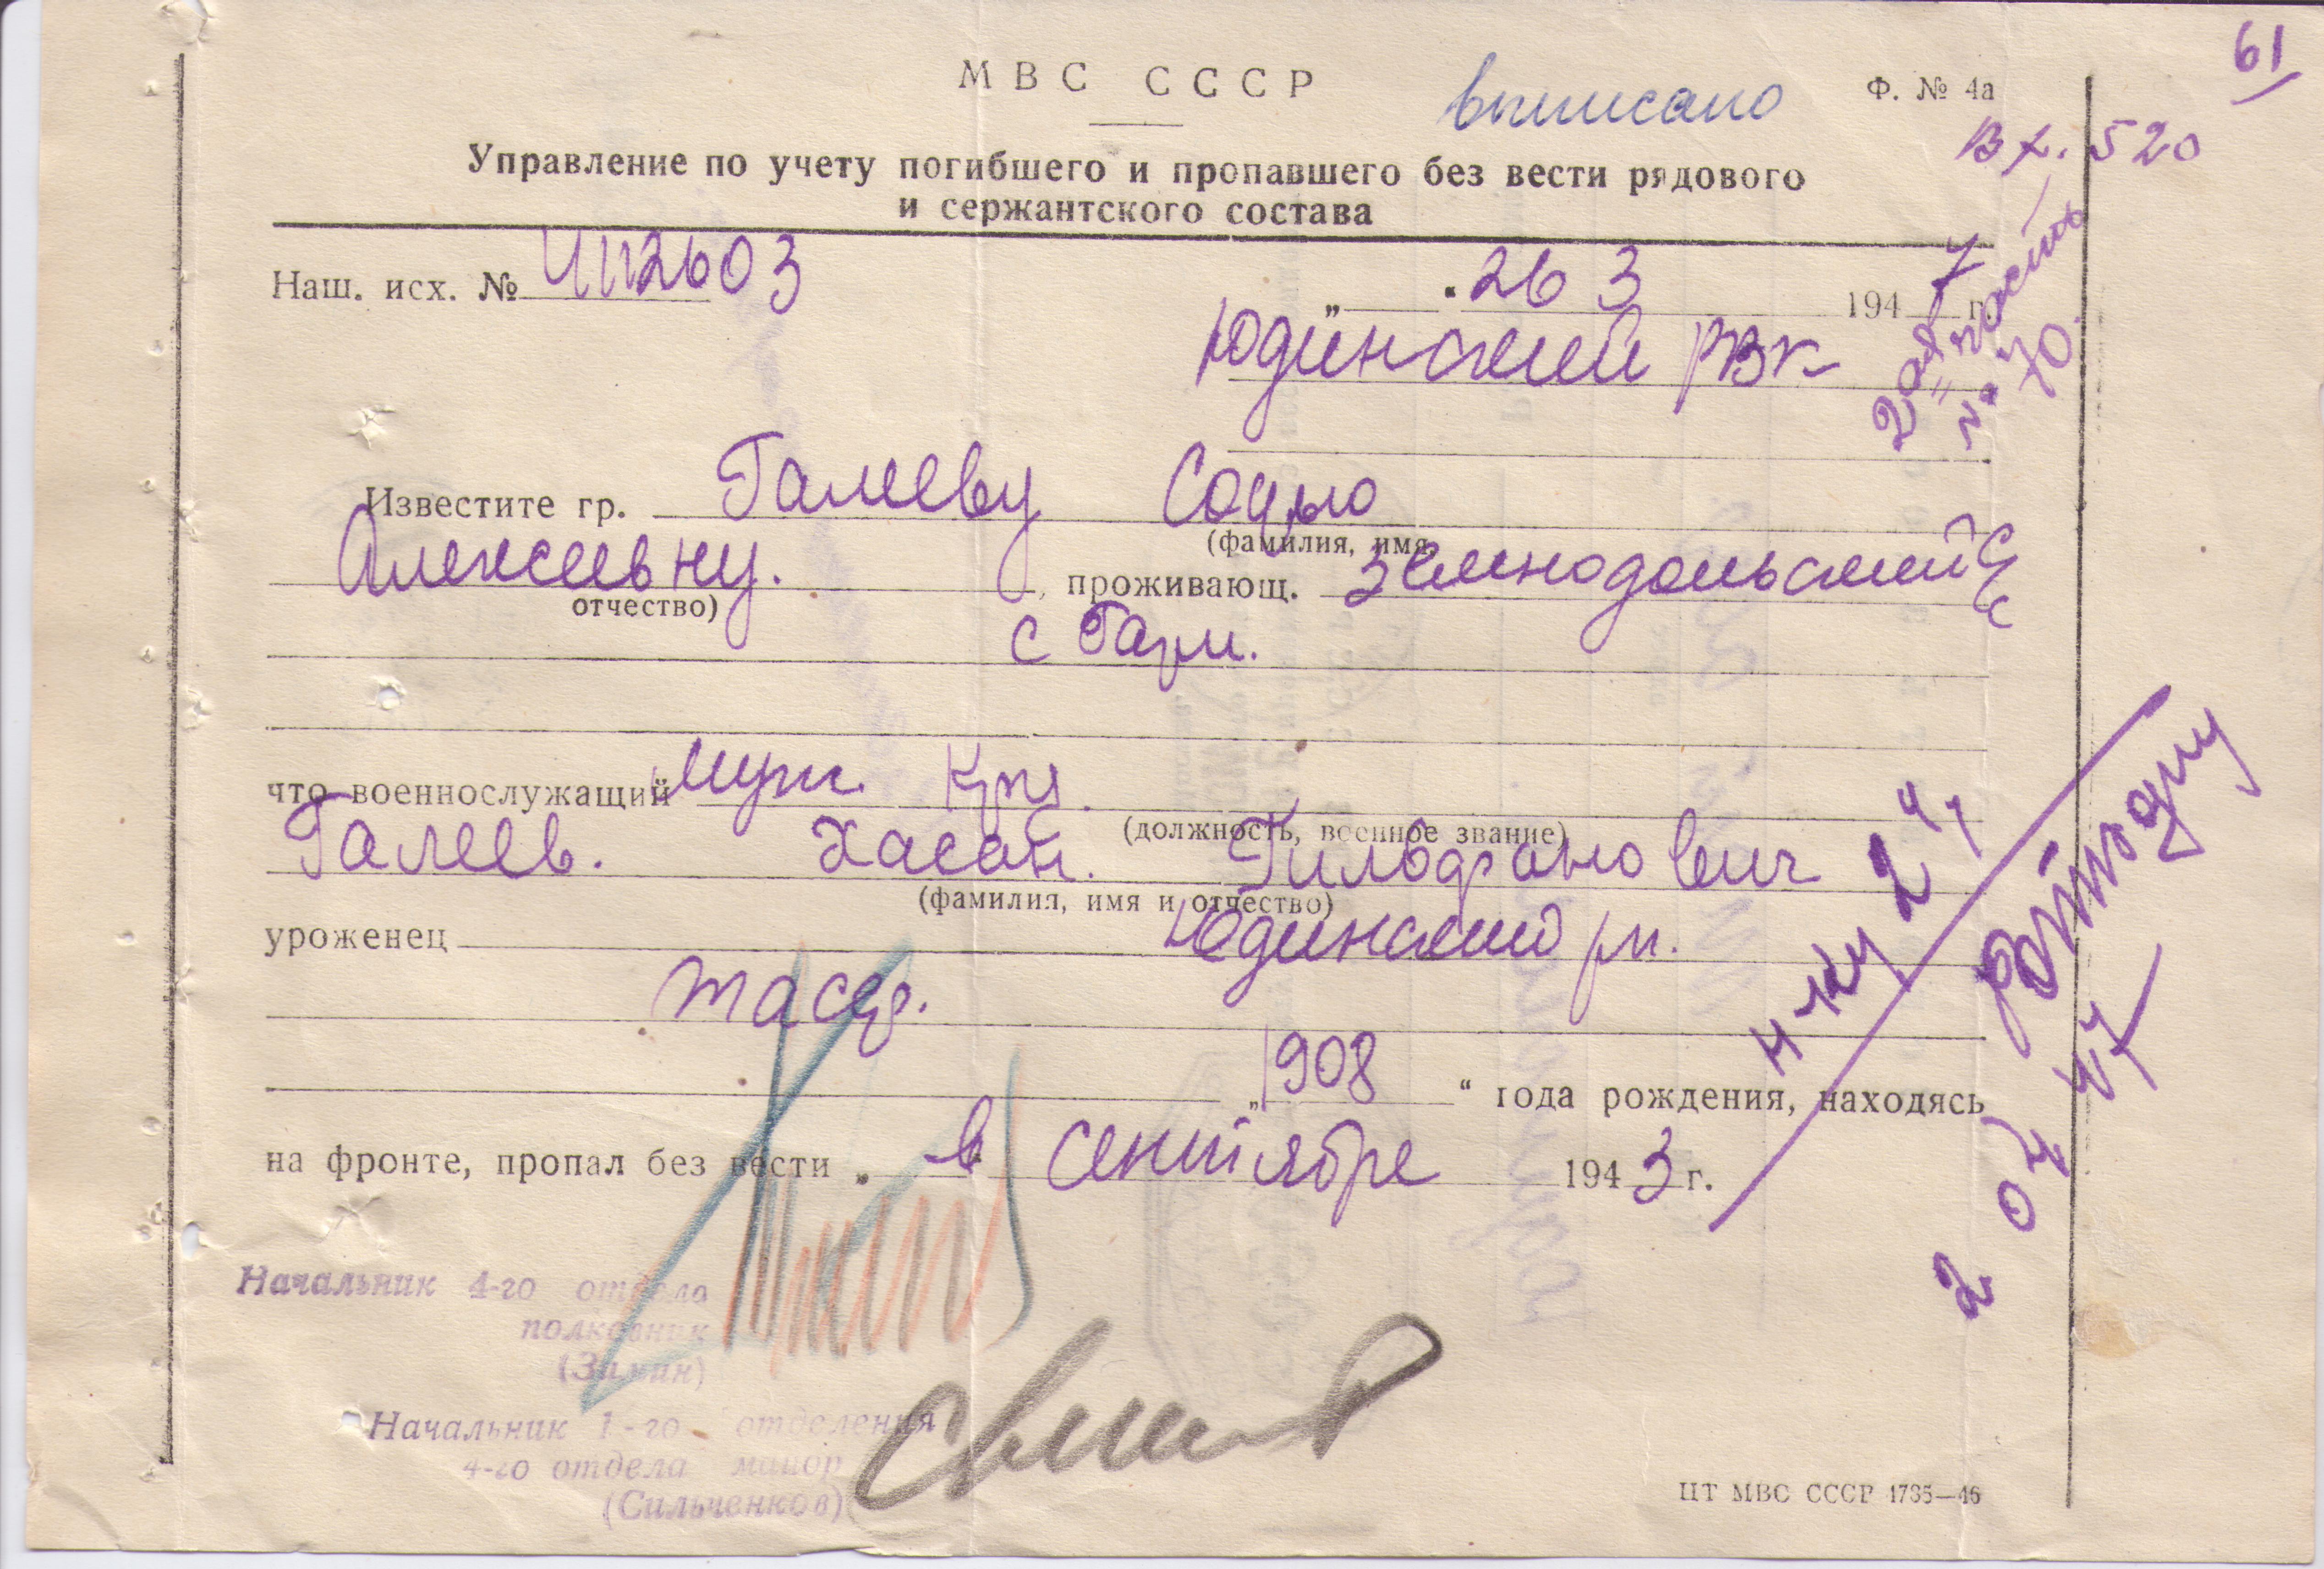 61
МВС СССР
выписано
Ф. № 4а
Вх. 520
Управление по учету погибшего и пропавшего без вести рядового
и сержантского состава
Наш. исх. №
„ “ 26 3 1947 г.
Юдинский РВК
2ая часть
№ 70.
Известите гр. Галееву Софью
(фамилия, имя
Алексеевну. , проживающ.
отчество)
с Гари.
что военнослужащий
(должность, военное звание)
Галеев. Хасан.
(фамилия, имя и отчество)
уроженец Юдинский рн.
тасср.
„ 1908 “ года рождения, находясь
на фронте, пропал без вести „ в сентябре 1943 г.
н-ку 2 ч
Начальник 4-го отдела
полковник
(Зимин)
Начальник 1-го отделения
4-го отдела майор
(Сильченков)
ЦТ МВС СССР 1735—46